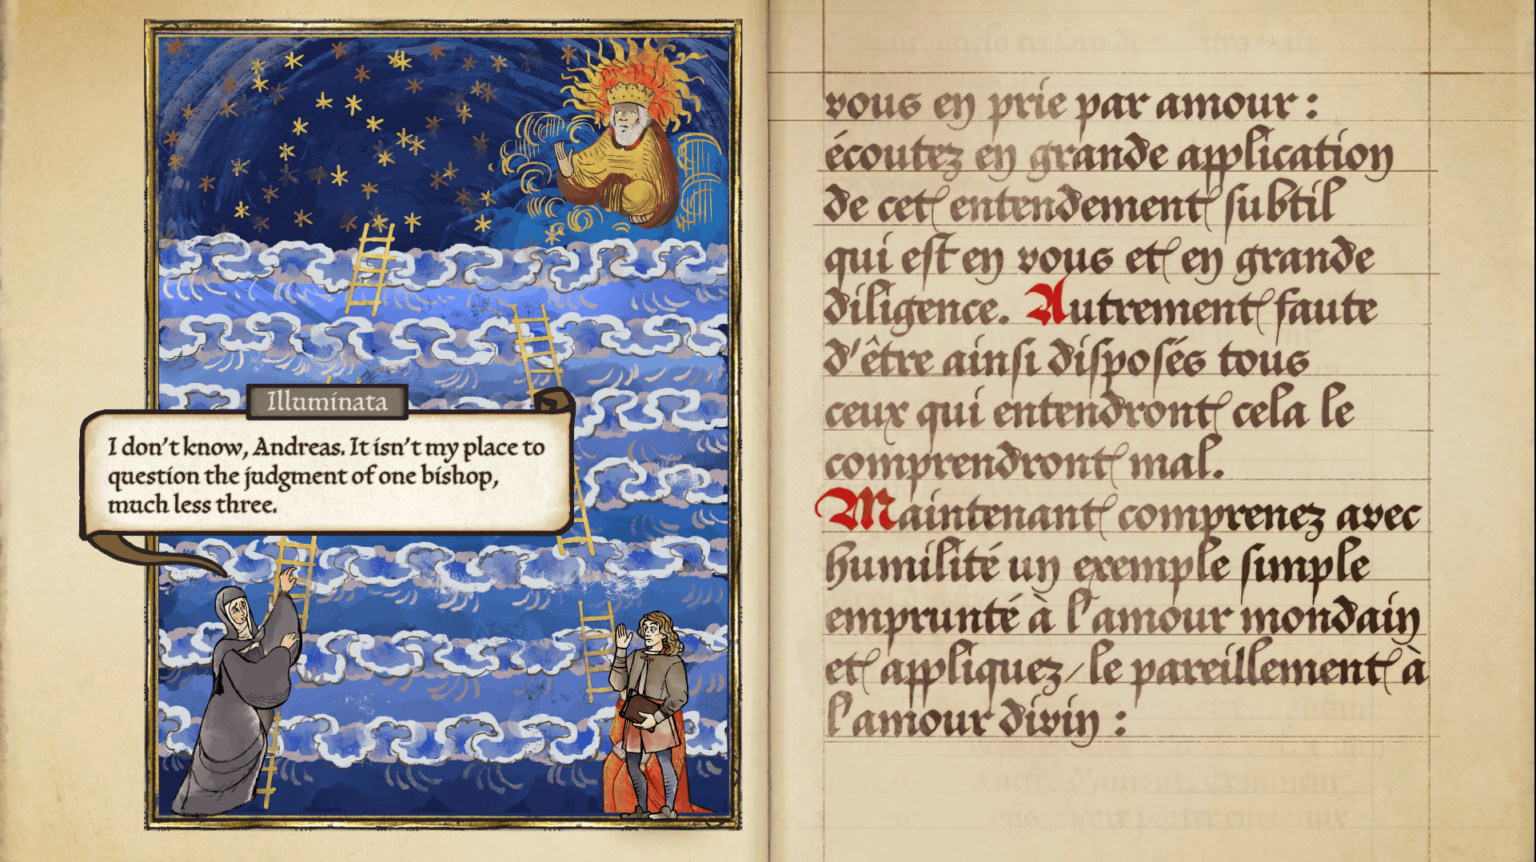 Illuminata
I don't know, Andreas. It isn't my place to
question the judgment of one bishop,
much less three.
vous en prie par amour :
écoutez en grande application
de cet entendement subtil
qui est en vous et en grande
diligence. Autrement faute
d'être ainsi disposés tous
ceux qui entendront cela le
comprendront mal.
Maintenant comprenez avec
humilité un exemple simple
emprunté à l'amour mondain
et appliquez-le pareillement à
l'amour divin :